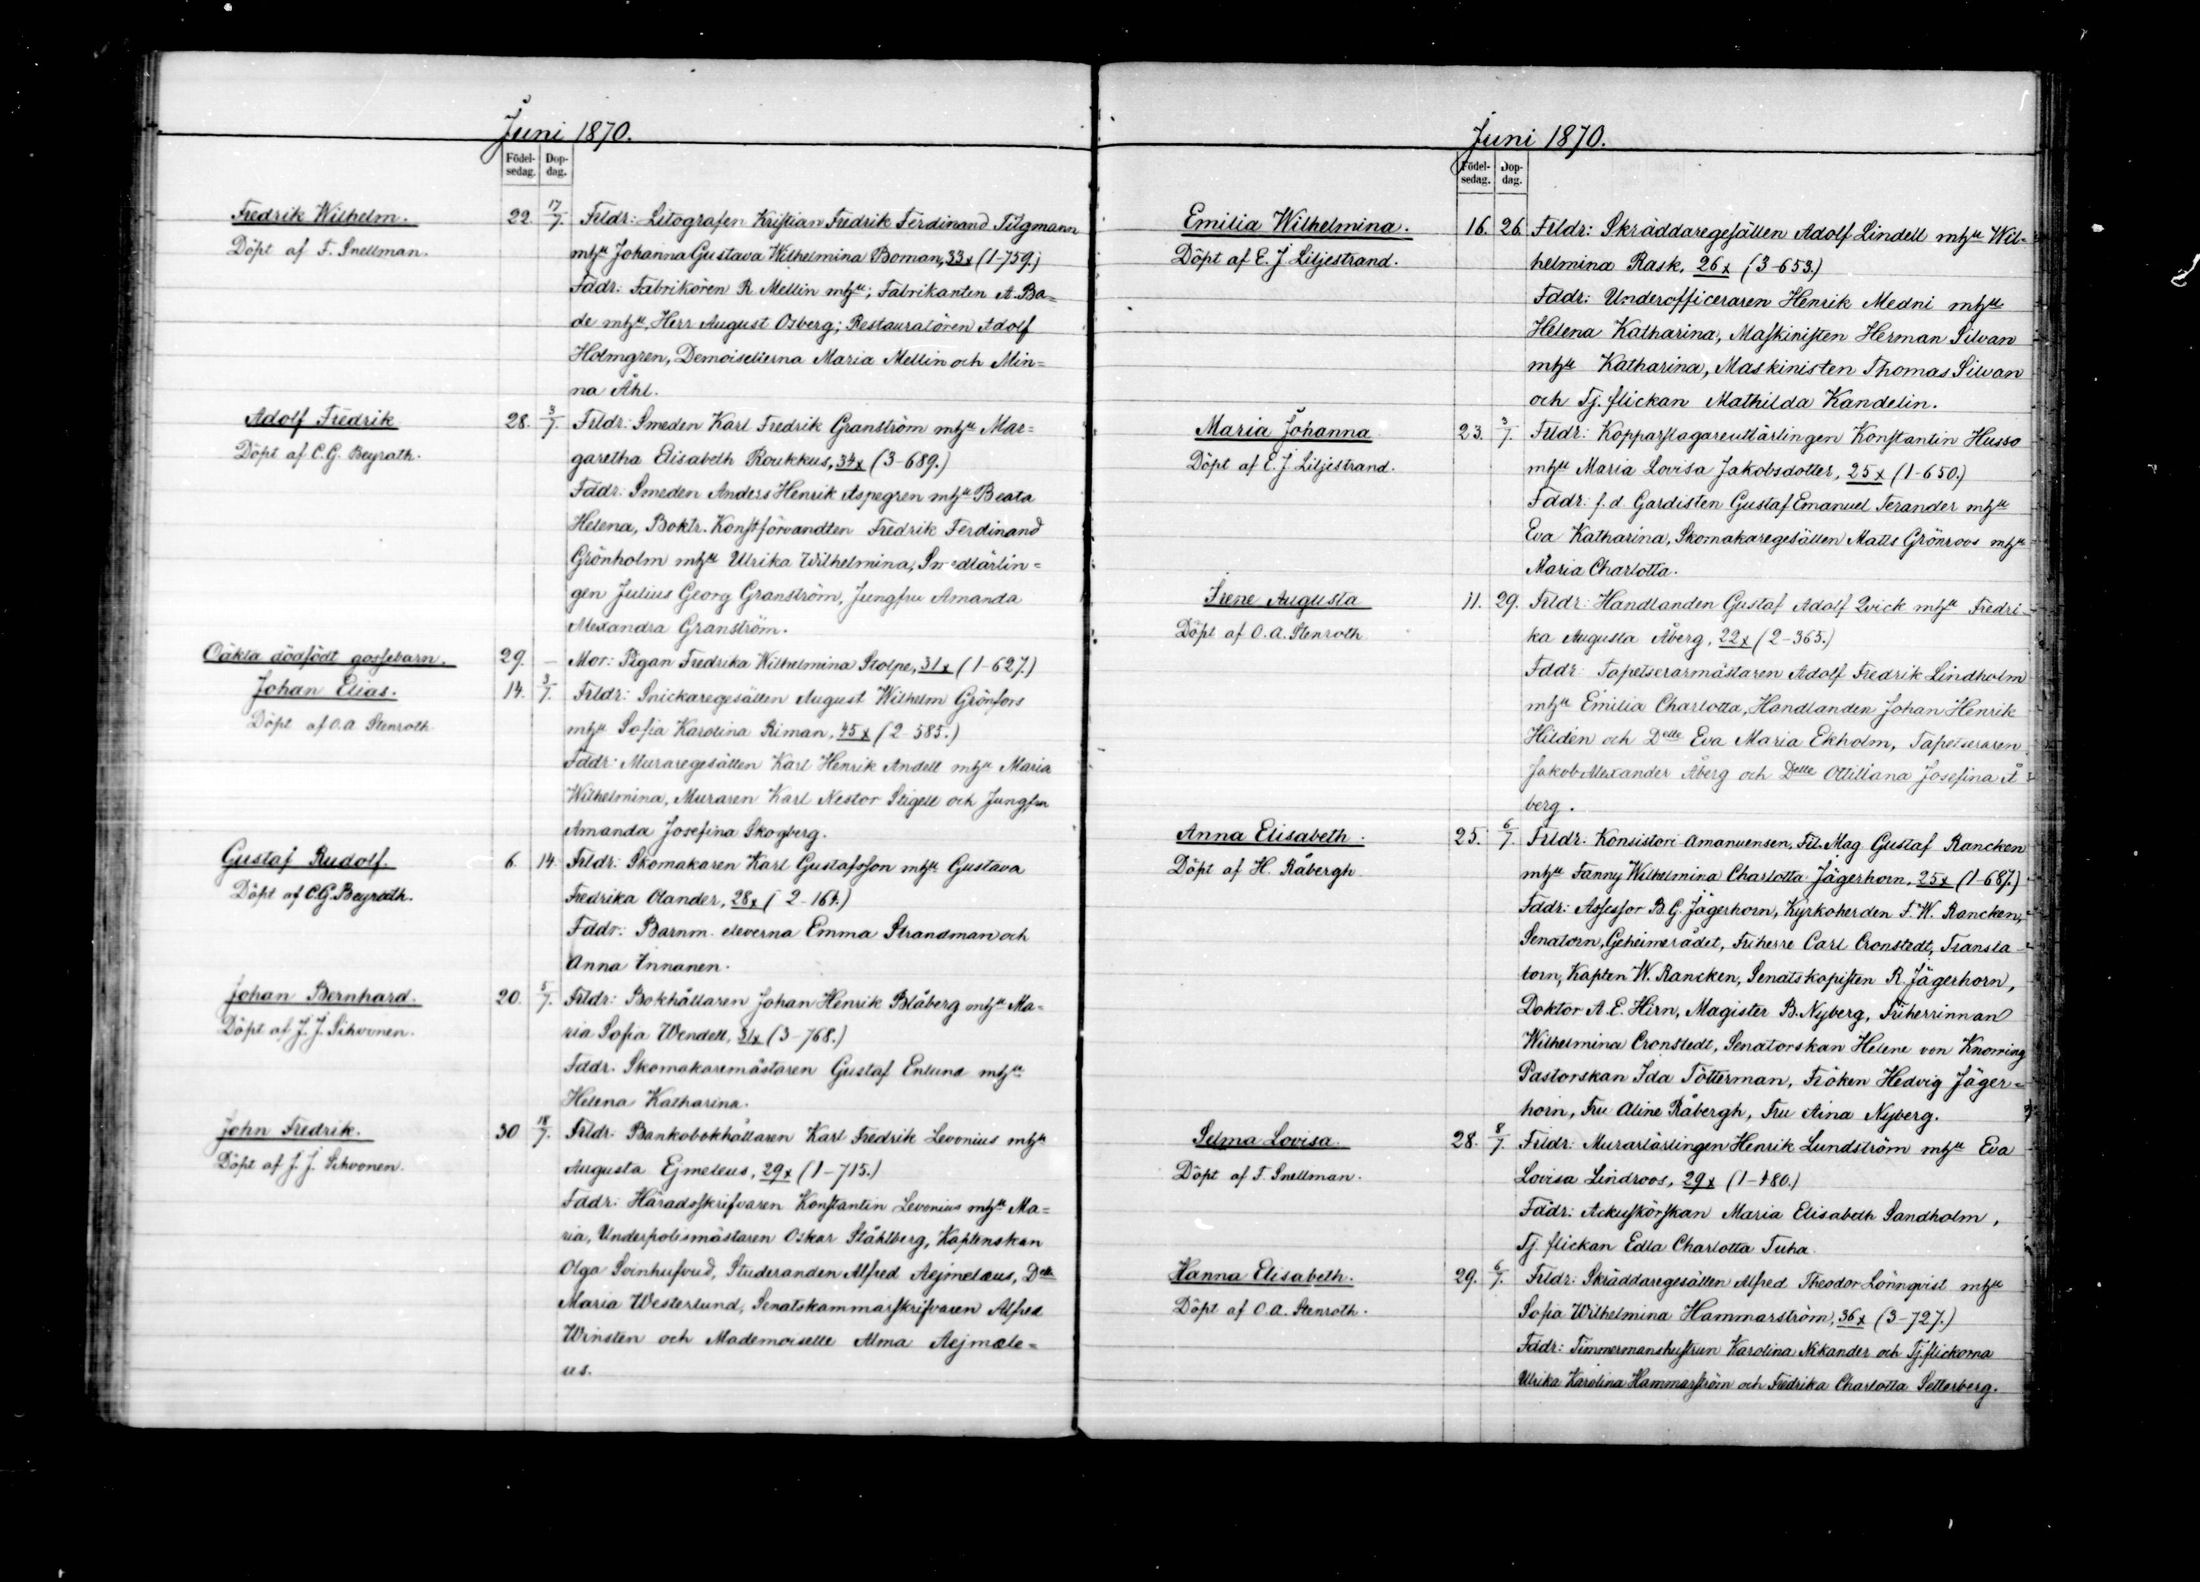 Juni 1870.
Födel-sedag. Dop-dag.
Fredrik Wilhelm. 22. 17/7. Frldr: Litografen Kristian Fredrik Ferdinand Tilgmann
Döpt af F. Snellman. mhu Johanna Gustava Wilhelmina Boman, 33x (1-759.)
Fddr: Fabrikören R Mellin mhu; Fabrikanten A. Ba=
de mhu, Herr August Osberg; Restauratören Adolf
Holmgren, Demoisellerna Maria Mellin och Min=
na Åhl.
Adolf Fredrik 28. 3/7 Frldr: Smeden Karl Fredrik Granström mhu Mar=
Döpt af C.G. Beyrath. garetha Elisabeth Roukkus, 34x (3-689.)
Fddr: Smeden Anders Henrik Aspegren mhu Beata
Helena, Boktr. Konstförvandten Fredrik Ferdinand
Grönholm mhu Ulrika Wilhelmina, Smedlärlin=
gen Julius Georg Granström, Jungfru Amanda
Alexandra Granström.
Oäkta dödfödt gossebarn. 29. – Mor: Pigan Fredrika Wilhelmina Stolpe, 31x (1-627.)
Johan Elias. 14. 3/7. Frldr: Snickaregesällen August Wilhelm Grönfors
Döpt af O.A Stenroth mhu Sofia Karolina Riman, 45x (2-585.)
Fddr: Muraregesällen Karl Henrik Andell mhu Maria
Wilhelmina, Muraren Karl Nestor Stigell och Jungfru
Amanda Josefina Skogberg.
Gustaf Rudolf. 6. 14. Frldr: Skomakaren Karl Gustafsson mhu Gustava
Döpt af C.G. Beyrath. Fredrika Olander, 28x (2-164.)
Fddr: Barnm. eleverna Emma Strandman och
Anna Innanen.
Johan Bernhard. 20. 5/7. Frldr: Bokhållaren Johan Henrik Blåberg mhu Ma=
Döpt af J. J. Sihvonen. ria Sofia Wendell, 31x (3-768.)
Fddr. Skomakaremästaren Gustaf Enlund mhu
Helena Katharina.
John Fredrik. 30 18/7. Frldr. Bankobokhållaren Karl Fredrik Levonius mhu
Döpt af J. J. Sihvonen. Augusta Ejmeleus, 29x (1-715.)
Fddr: Häradsskrifvaren Konstantin Levonius mhu Ma=
ria, Underpolismästaren Oskar Ståhlberg, Kaptenskan
Olga Svinhufvud, Studeranden Alfred Aejmelæus, Delle
Maria Westerlund, Senatskammarskrifvaren Alfred
Winsten och Mademoiselle Alma Aejmæle=
us.
Juni 1870.
Födel-sedag. Dop-dag.
Emilia Wilhelmina. 16. 26 Frldr: Skräddaregesällen Adolf Lindell mhu Wil=
Döpt af E. J Liljestrand. helmina Rask, 26x (3-653.)
Fddr: Underofficeraren Henrik Medni mhu
Helena Katharina, Maskinisten Herman Silvan
mhu Katharina, Maskinisten Thomas Silvan
och Tj. flickan Mathilda Kandelin.
Maria Johanna 23. 3/7. Frldr: Kopparslagareutlärlingen Konstantin Husso
Döpt af E. J Liljestrand. mhu Maria Lovisa Jakobsdotter, 25x (1-650.)
Fddr: f.d. Gardisten Gustaf Emanuel Terander mhu
Eva Katharina, Skomakaregesällen Matts Grönroos mhu
Maria Charlotta.
Irene Augusta 11. 29. Frldr: Handlanden Gustaf Adolf Qvick mhu Fredri-
Döpt af O. A. Stenroth ka Augusta Åberg, 22x (2-365.)
Fddr: Tapetserarmästaren Adolf Fredrik Lindholm
mhu Emilia Charlotta, Handlanden Johan Henrik
Hildén och Delle Eva Maria Ekholm, Tapetseraren
Jakob Alexander Åberg och Delle Ottiliana Josefina Å=
berg.
Anna Elisabeth. 25. 6/7. Frldr. Konsistori amanuensen, Fil. Mag. Gustaf Rancken
Döpt af H. Råbergh mhu Fanny Wilhelmina Charlotta Jägerhorn, 25x (1-687.)
Fddr: Assessor B. G. Jägerhorn, Kyrkoherden F. W. Rancken,
Senatorn, Geheimerådet, Friherre Carl Cronstedt, Transla-
torn, Kapten W. Rancken, Senatskopisten R. Jägerhorn,
Doktor A. E. Hirn, Magister B. Nyberg, Friherrinnan
Wilhelmina Cronstedt, Senatorskan Helene von Knorring
Pastorskan Ida Tötterman, Fröken Hedvig Jäger=
horn, Fru Aline Råbergh, Fru Aina Nyberg.
Selma Lovisa 28. 8/7. Frldr: Murarlärlingen Henrik Lundström mhu Eva
Döpt af F. Snellman. Lovisa Lindroos, 29x (1-480.)
Fddr: Ackuskörskan Maria Elisabeth Sandholm,
Tj. flickan Edla Charlotta Tuha.
Hanna Elisabeth. 29. 6/7. Frldr: Skräddaregesällen Alfred Theodor Lönnqvist mhu
Döpt af O. A. Stenroth. Sofia Wilhelmina Hammarström, 36x (3-727.)
Fddr: Timmermanshustrun Karolina Nikander och Tj. flickorna
Ulrika Karolina Hammarström och Fredrika Charlotta Setterberg.